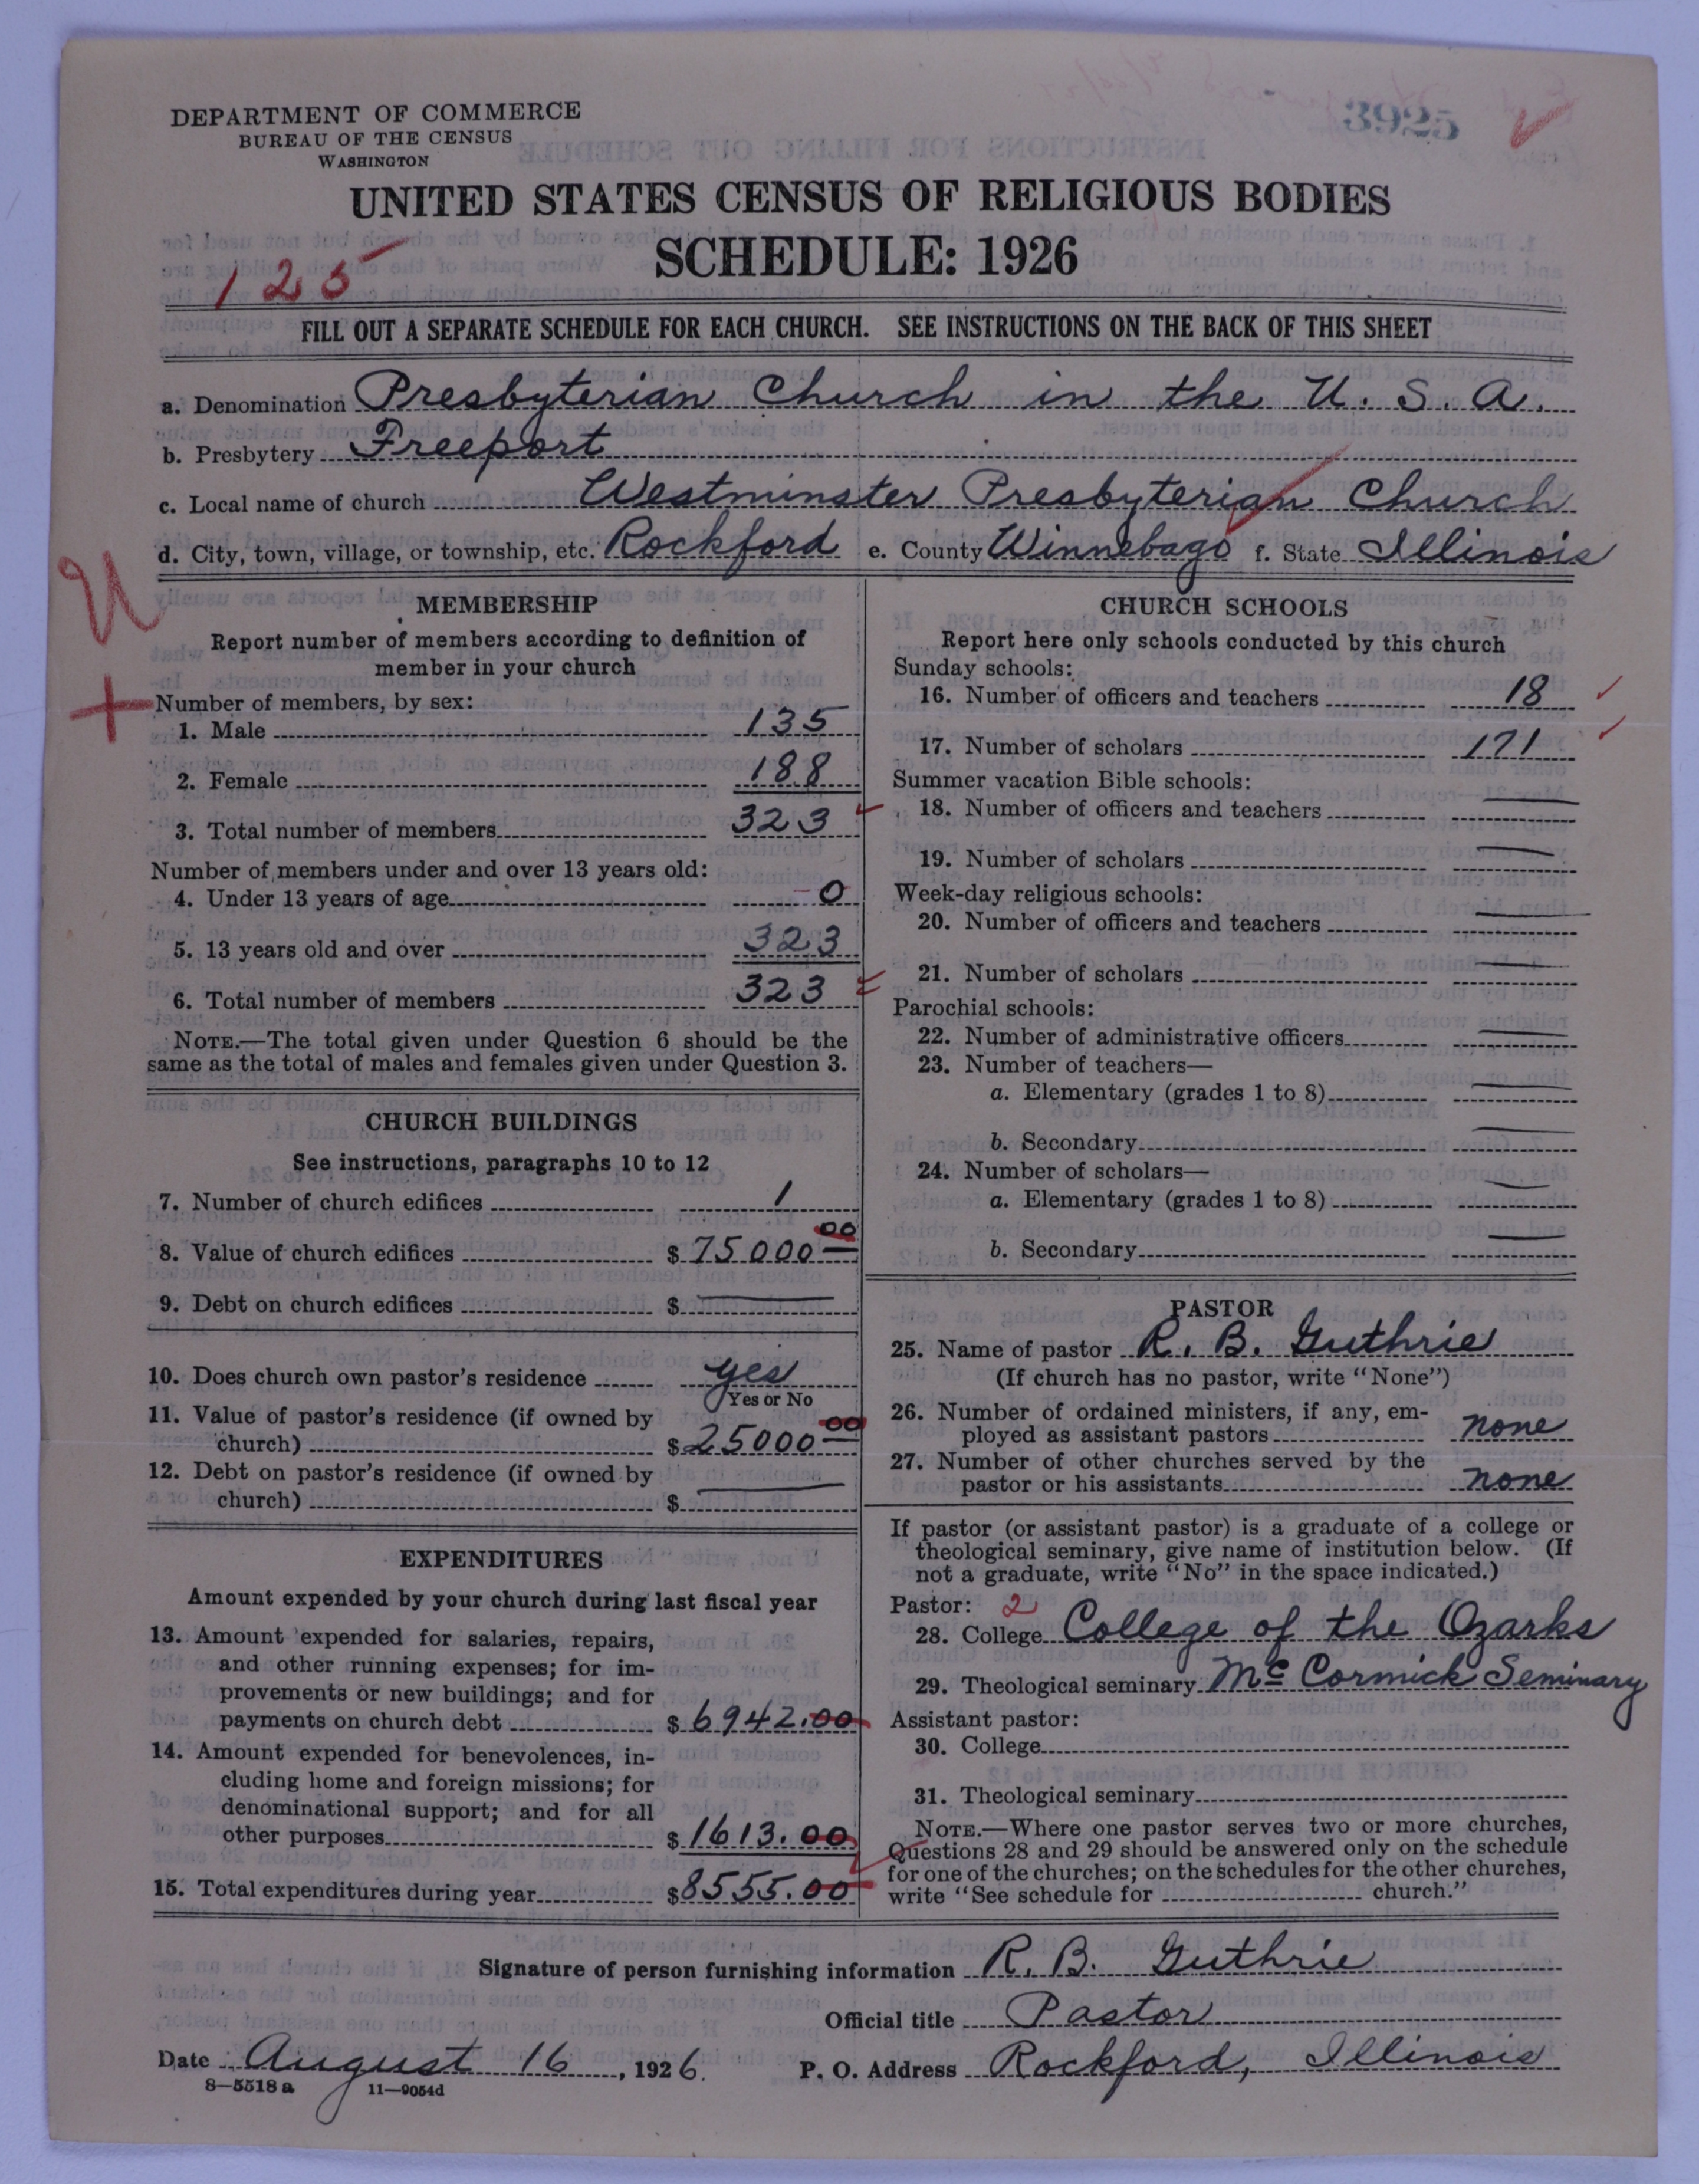 DEPARTMENT OF COMMERCE
BUREAU OF THE CENSUS
WASHINGTON
3925
UNITED STATES CENSUS OF RELIGIOUS BODIES
SCHEDULE: 1926
125
FILL OUT A SEPARATE SCHEDULE FOR EACH CHURCH. SEE INSTRUCTIONS ON THE BACK OF THIS SHEET
a. Denomination Presbyterian Church in the U. S. A.
b. Presbytery Freeport
c. Local name of church Westminster Presbyterian Church
d. City, town, village, or township, etc. Rockford e. County Winnebago f. State Illinois
U
+
MEMBERSHIP
Report number of members according to definition of
member in your church
Number of members, by sex:
1. Male 135
2. Female 188
3. Total number of members 323
Number of members under and over 13 years old:
4. Under 13 years of age 0
5. 13 years old and over 323
6. Total number of members 323
NOTE.—The total given under Question 6 should be the
same as the total of males and females given under Question 3.
CHURCH BUILDINGS
See instructions, paragraphs 10 to 12
7. Number of church edifices 1
8. Value of church edifices $ 75000 00
9. Debt on church edifices $ —
10. Does church own pastor's residence yes
Yes or No
11. Value of pastor's residence (if owned by
church) $ 25000 00
12. Debt on pastor's residence (if owned by
church) $ —
EXPENDITURES
Amount expended by your church during last fiscal year
13. Amount expended for salaries, repairs,
and other running expenses; for im-
provements or new buildings; and for
payments on church debt $ 6942.00
14. Amount expended for benevolences, in-
cluding home and foreign missions; for
denominational support; and for all
other purposes $ 1613.00
15. Total expenditures during year $ 8555.00
CHURCH SCHOOLS
Report here only schools conducted by this church
Sunday schools:
16. Number of officers and teachers 18
17. Number of scholars 171
Summer vacation Bible schools:
18. Number of officers and teachers —
19. Number of scholars —
Week-day religious schools:
20. Number of officers and teachers —
21. Number of scholars —
Parochial schools:
22. Number of administrative officers —
23. Number of teachers—
a. Elementary (grades 1 to 8) —
b. Secondary —
24. Number of scholars—
a. Elementary (grades 1 to 8) —
b. Secondary —
PASTOR
25. Name of pastor R. B. Guthrie
(If church has no pastor, write "None")
26. Number of ordained ministers, if any, em-
ployed as assistant pastors none
27. Number of other churches served by the
pastor or his assistants none
If pastor (or assistant pastor) is a graduate of a college or
theological seminary, give name of institution below. (If
not a graduate, write "No" in the space indicated.)
Pastor: 2
28. College College of the Ozarks
29. Theological seminary McCormick Seminary
Assistant pastor:
30. College
31. Theological seminary
NOTE.—Where one pastor serves two or more churches,
Questions 28 and 29 should be answered only on the schedule
for one of the churches; on the schedules for the other churches,
write "See schedule for church."
Signature of person furnishing information R. B. Guthrie
Official title Pastor
Date August 16, 1926. P. O. Address Rockford, Illinois
8—5518 a 11—9054d